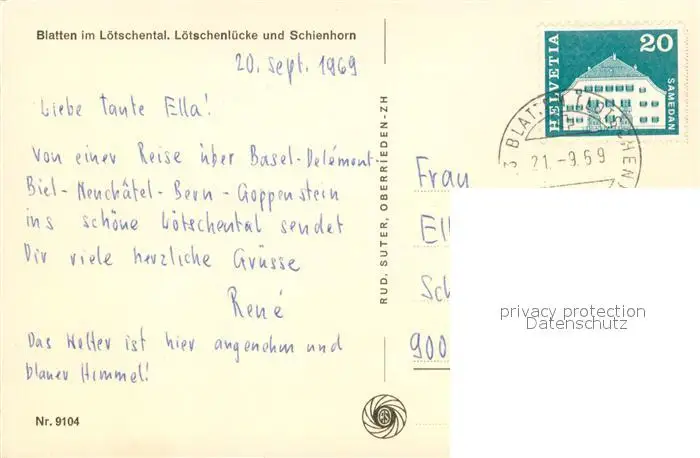 Blatten im Lötschental. Lötschenlücke und Schienhorn
20. Sept. 1969
Liebe tante Ella!
Von einer Reise über Basel-Delémont-
Biel-Neuchâtel-Bern-Goppenstein
ins schöne Lötschental sendet
Dir viele herzliche Grüsse
René
Das Wetter ist hier angenehm und
blauer Himmel!
Nr. 9104
RUD. SUTER, OBERRIEDEN-ZH
HELVETIA
20
SAMEDAN
BLATTEN (LÖTSCHEN)
21.-9.69
Frau
Ell
Sch
900
privacy protection
Datenschutz